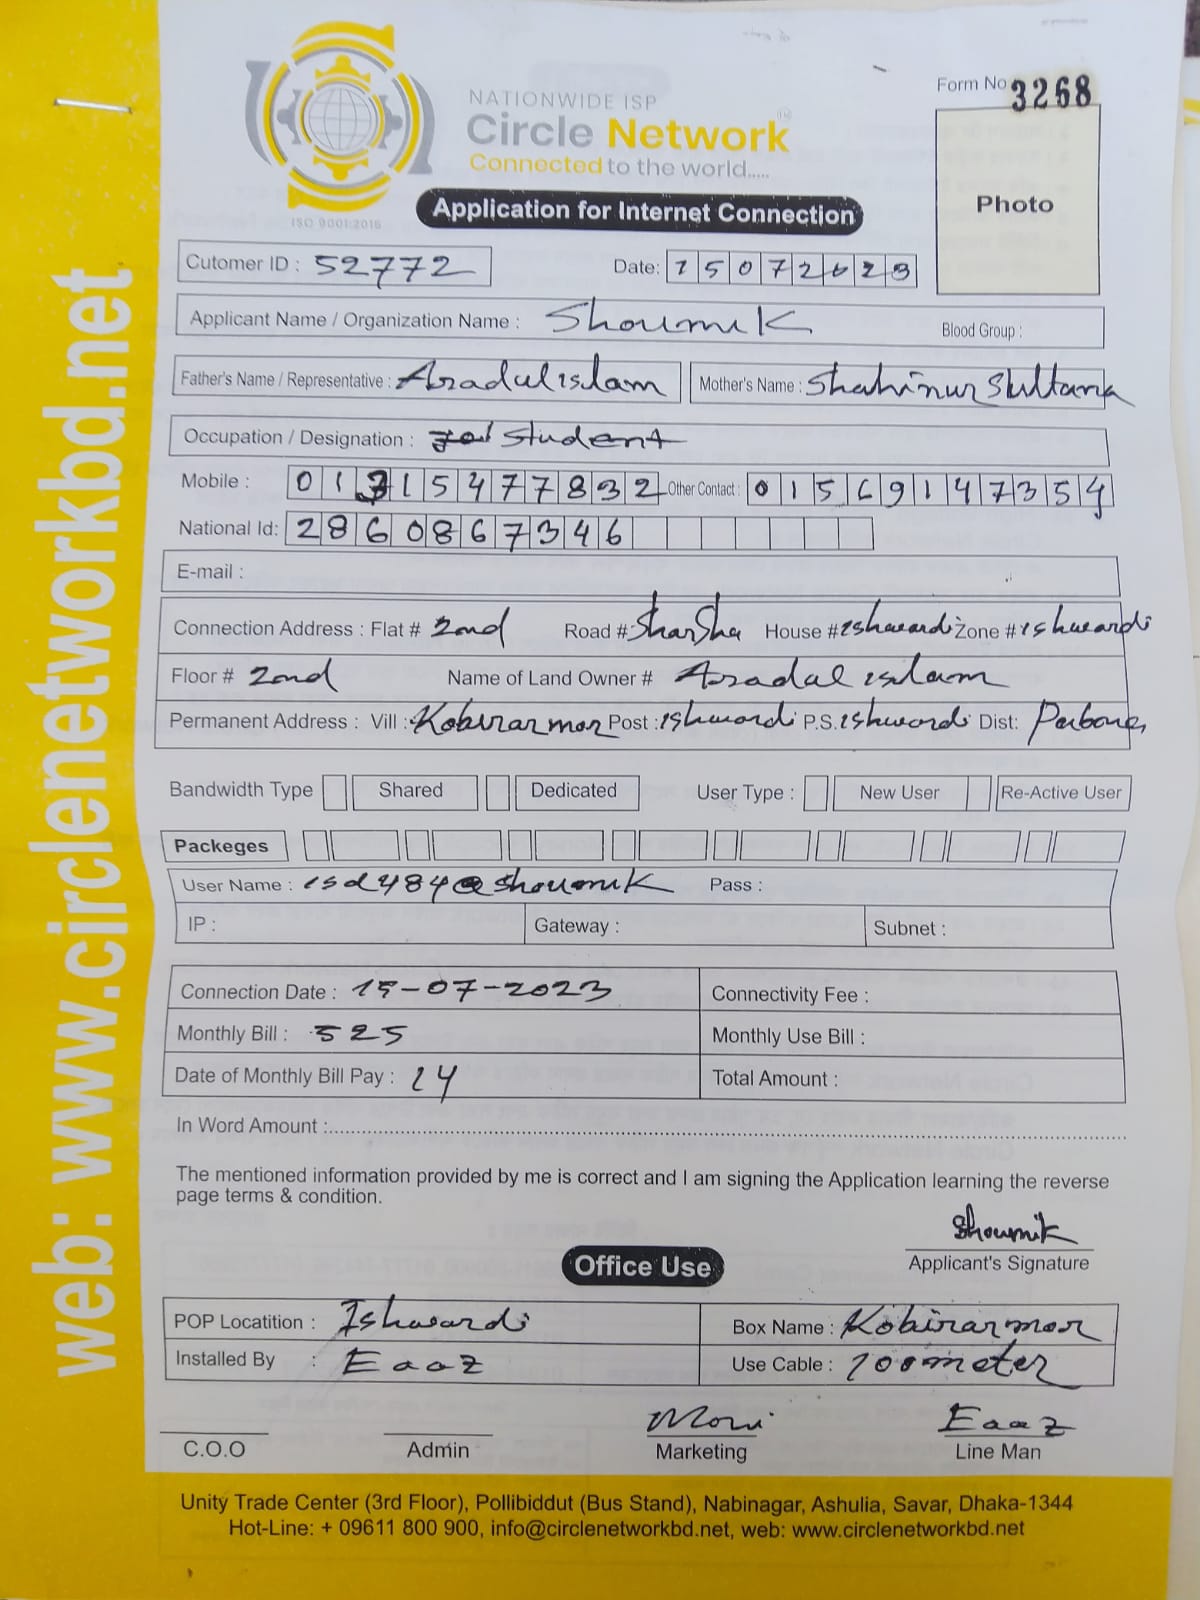 Form No 3268
NATIONWIDE ISP
Circle Network
Connected to the world.....
ISO 9001:2015
Application for Internet Connection
Photo
Cutomer ID : 52772 Date: 15072023
Applicant Name / Organization Name : Shoumik Blood Group :
Father's Name / Representative : Asadul islam Mother's Name : Shahinur Sultana
Occupation / Designation : Student
Mobile : 01315477832 Other Contact : 01569147354
National Id: 2860867346
E-mail :
Connection Address : Flat # 2nd Road # Sharsha House # ishwardi Zone # ishwardi
Floor # 2nd Name of Land Owner # Asadal islam
Permanent Address : Vill : Kobirarmor Post : ishwardi P.S. ishwardi Dist: Pabona
Bandwidth Type Shared Dedicated User Type : New User Re-Active User
Packeges
User Name : isd484@shoumik Pass :
IP : Gateway : Subnet :
Connection Date : 15-07-2023 Connectivity Fee :
Monthly Bill : 525 Monthly Use Bill :
Date of Monthly Bill Pay : 14 Total Amount :
In Word Amount :
The mentioned information provided by me is correct and I am signing the Application learning the reverse
page terms & condition.
Shoumik
Applicant's Signature
Office Use
POP Locatition : Ishwardi Box Name : Kobirarmor
Installed By : Eaaz Use Cable : 200meter
Moni Eaaz
C.O.O Admin Marketing Line Man
Unity Trade Center (3rd Floor), Pollibiddut (Bus Stand), Nabinagar, Ashulia, Savar, Dhaka-1344
Hot-Line: + 09611 800 900, info@circlenetworkbd.net, web: www.circlenetworkbd.net
web: www.circlenetworkbd.net